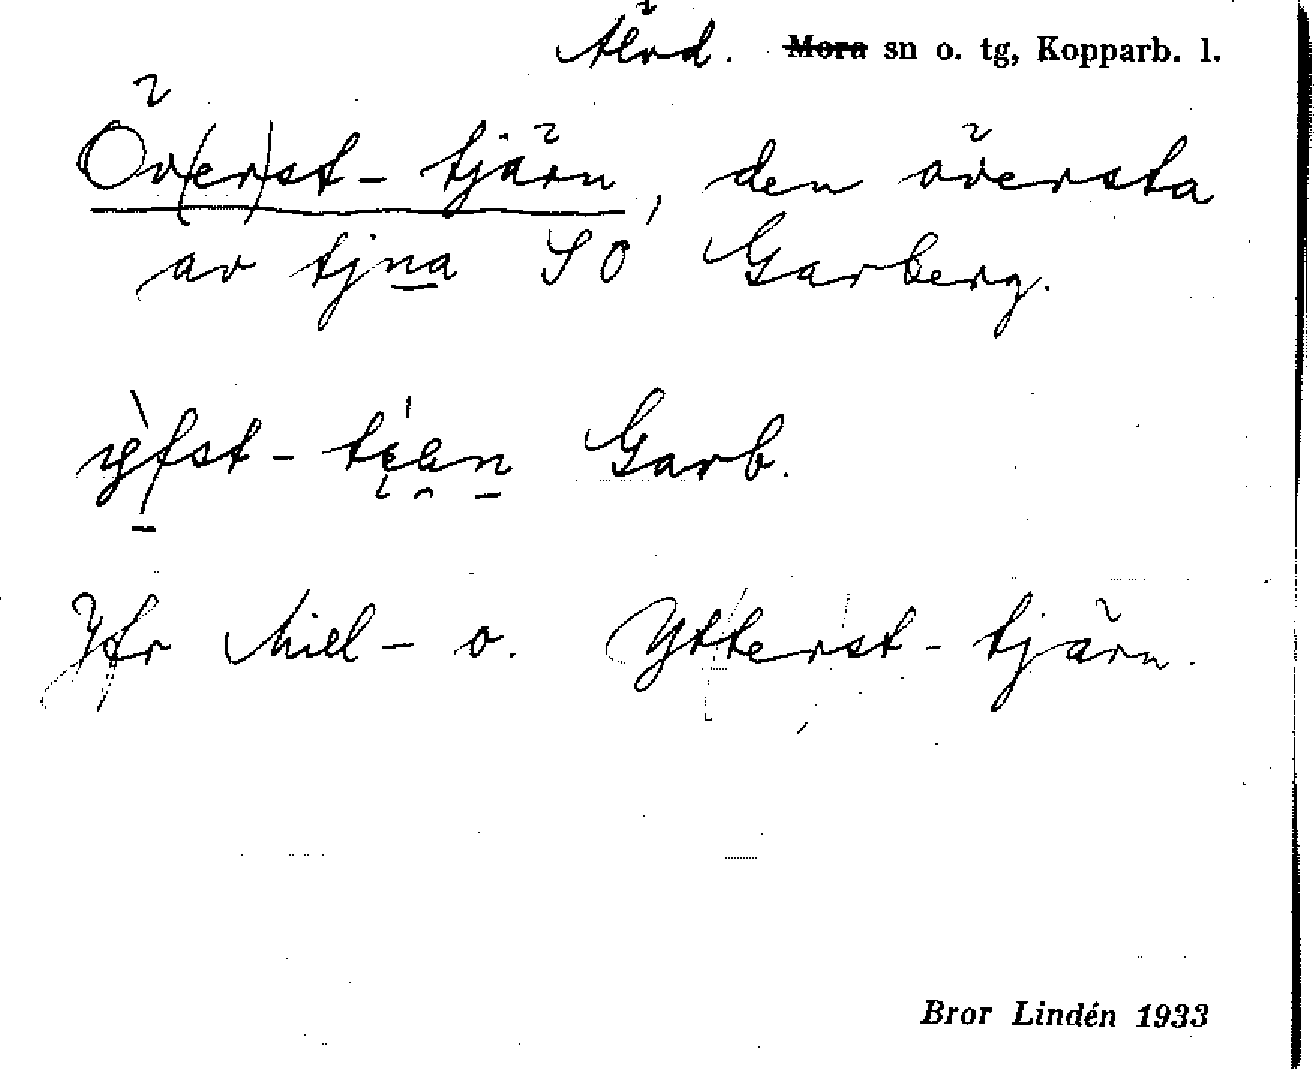 Älvd. Mora sn o. tg, Kopparb. l.
Öv(er)st-tjärn, den översta
av tjna SO Garberg.
Garb.
Jfr Mitt- o. Ytterst-tjärn.
Bror Lindén 1933